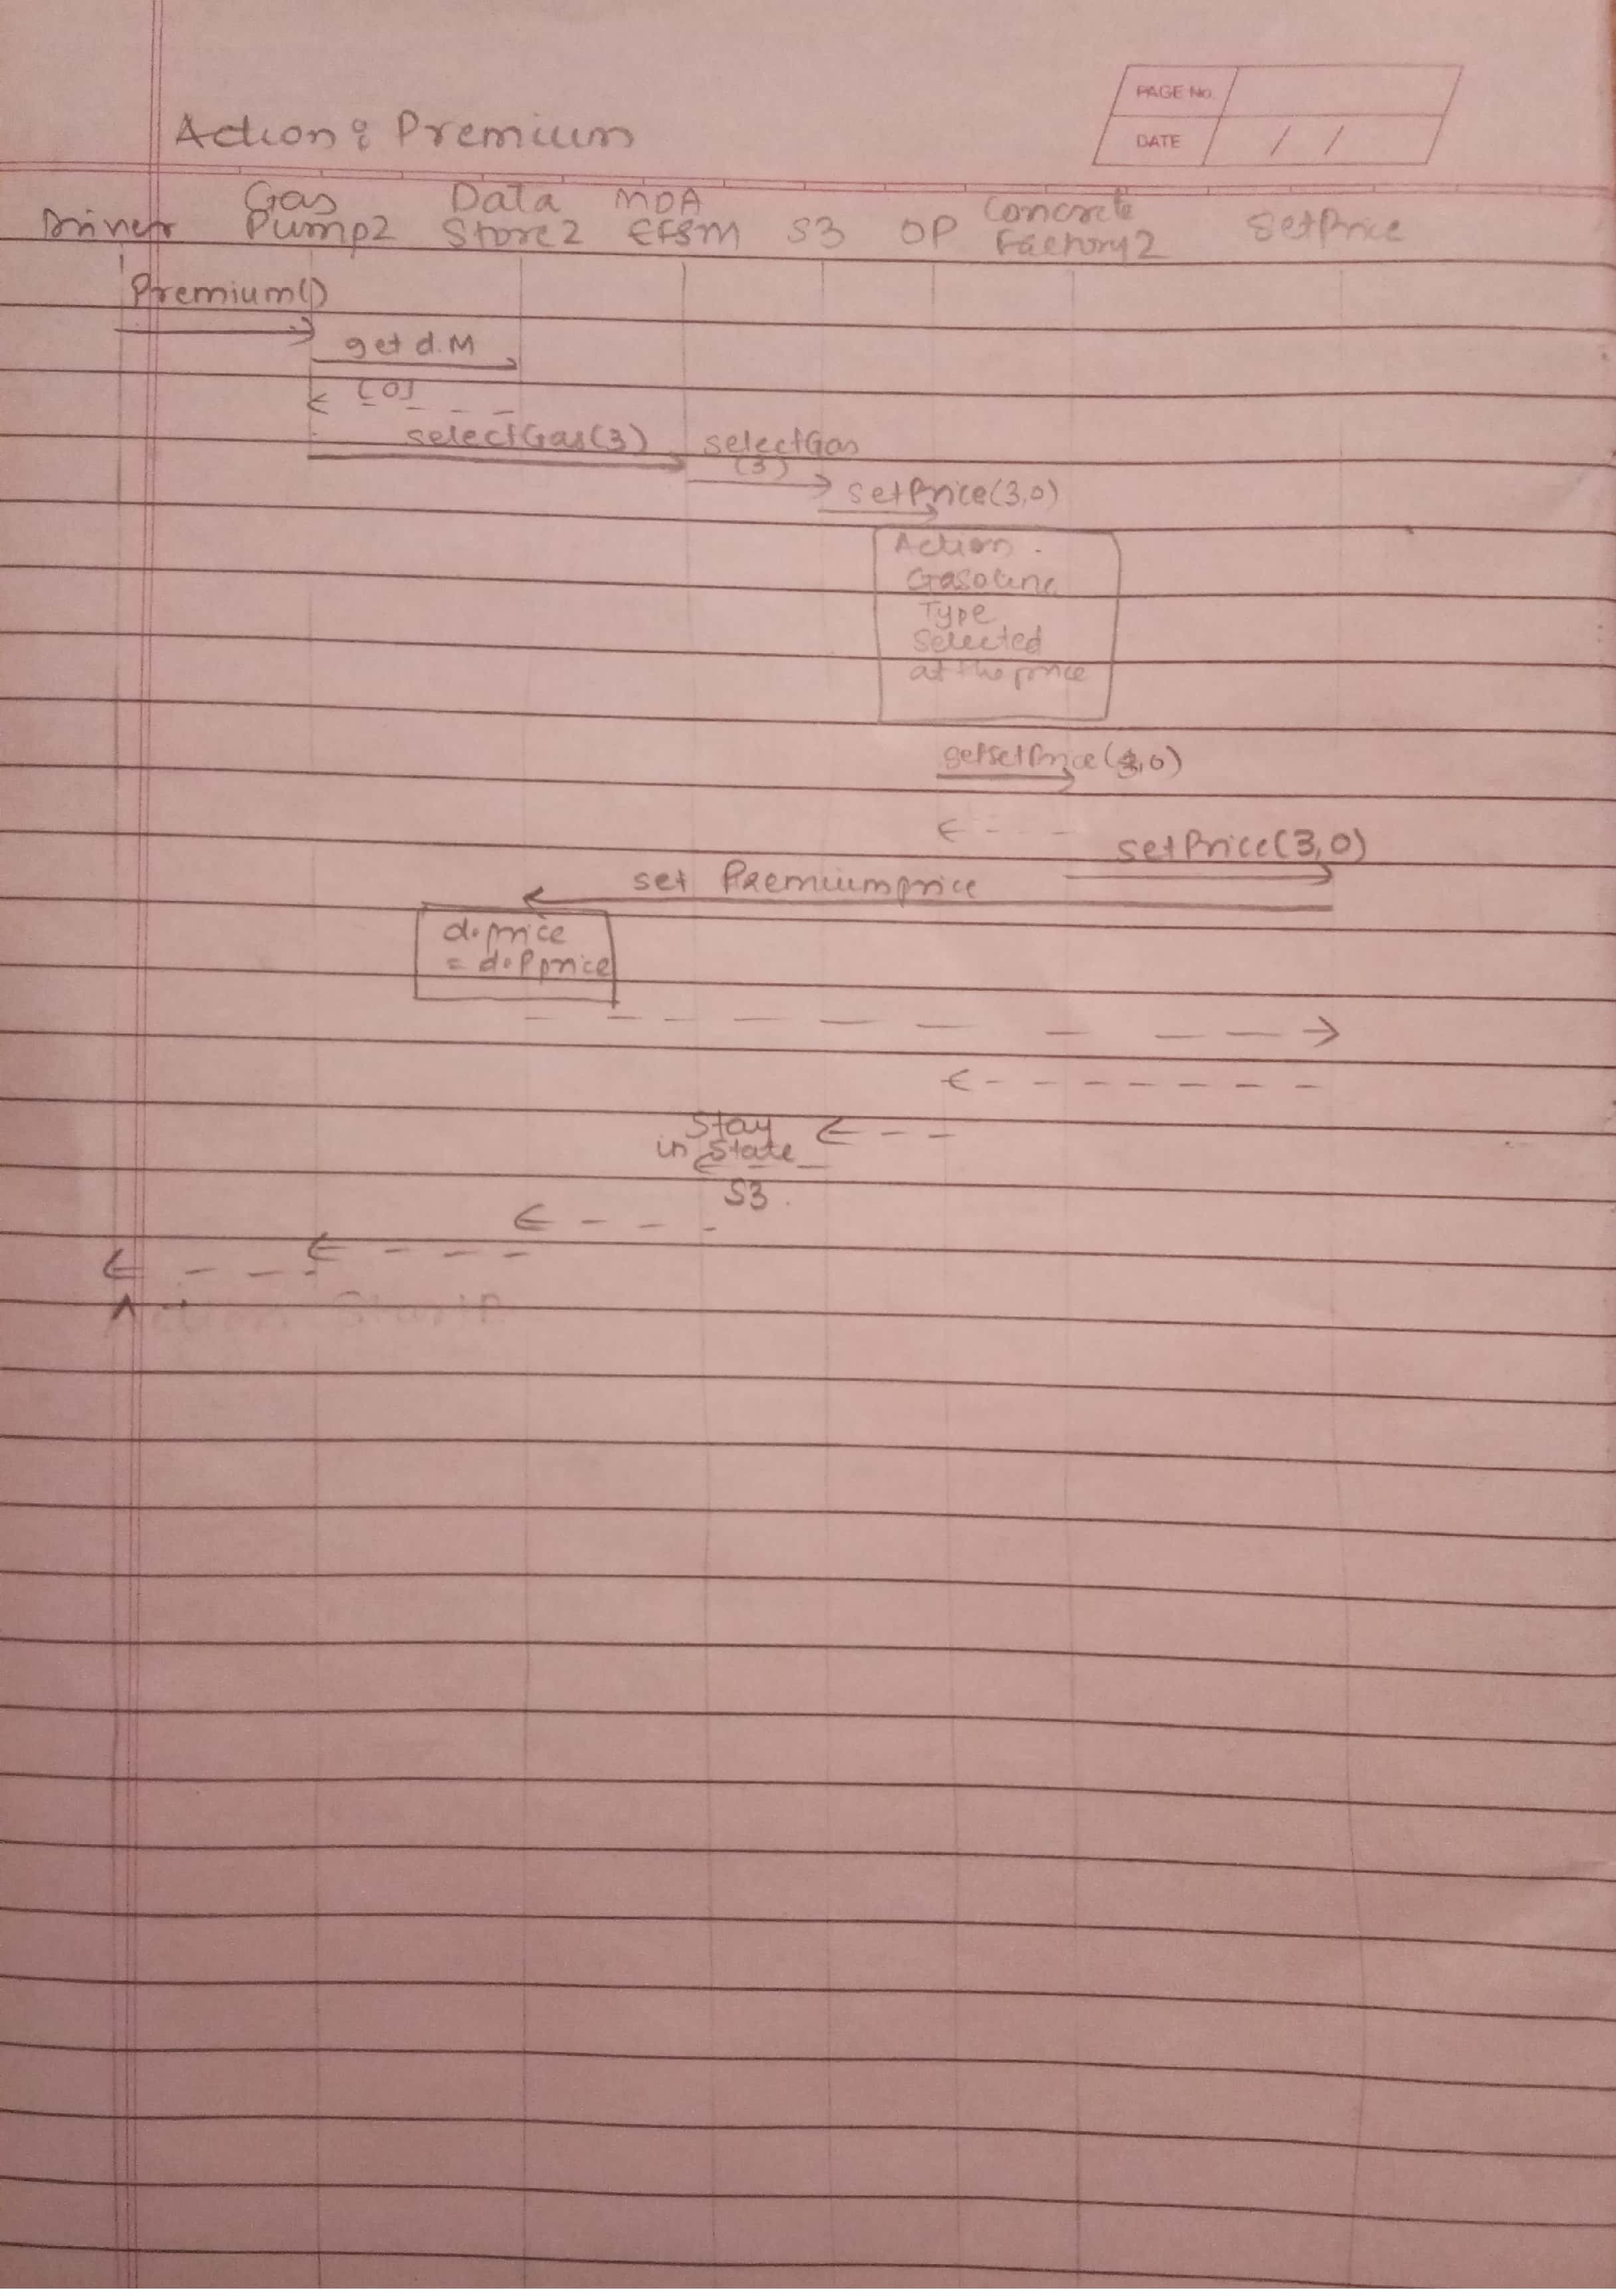 PAGE No.
DATE / /
Action: Premium
Driver
Gas
Pump2
Data
Store2
MDA
EFSM
S3
OP
Concrete
Factory2
SetPrice
Premium()
get d.M
selectGas(3)
selectGas
(3)
setPrice(3,0)
Action
Gasoline
Type
Selected
at the price
getsetPrice(3,0)
setPrice(3,0)
set Premiumprice
d.price
= d.Pprice
Stay
in State
S3